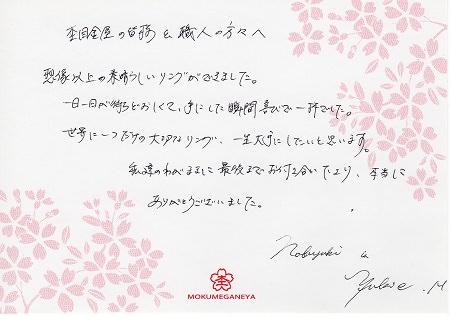 杢目金屋の皆様 & 職人の方々へ
想像以上の素晴らしいリングができました。
一日一日が待ちどおしくて、手にした瞬間喜びで一杯でした。
世界に一つだけの大切なリング、一生大事にしたいと思います。
私達のわがままに最後までお付き合い下さり、本当に
ありがとうございました。
Nobuyuki &
杢
MOKUMEGANEYA